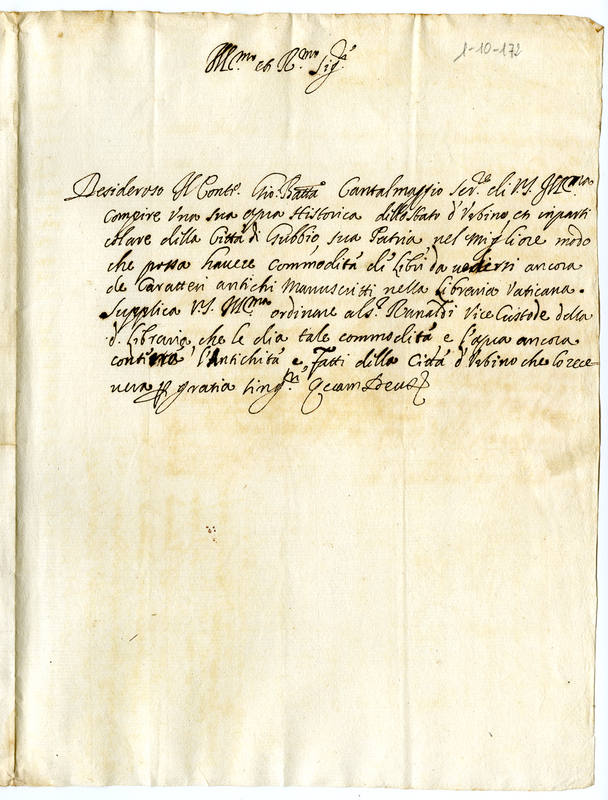 Ill.mo et R.mo Sig.re
1-10-172
Desideroso Il Conte Gio: Batta Cantalmaggio Ser.re di V.S. Ill.ma
compire Una sua opua Historica dello Stato d'Urbino et inparti
colare della Città di Gubbio, sua Patria, nel migliore modo
che possa havere commodità di libri da vedersi ancora
de Caratteri antichi Manuscritti nella Libreria Vaticana.
Supplica V.S. Ill.ma ordinare al S.r Ranaldi Vice Custode della
d. libreria, che le dia tale commodità e l'opua ancora
l'Antichità e Fatti della Città d'Urbino che lo rece
vera p gratia sing.re Quam Deus